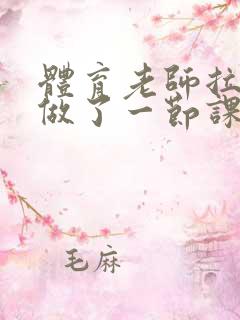 體育老師拉
做了一節課
毛麻